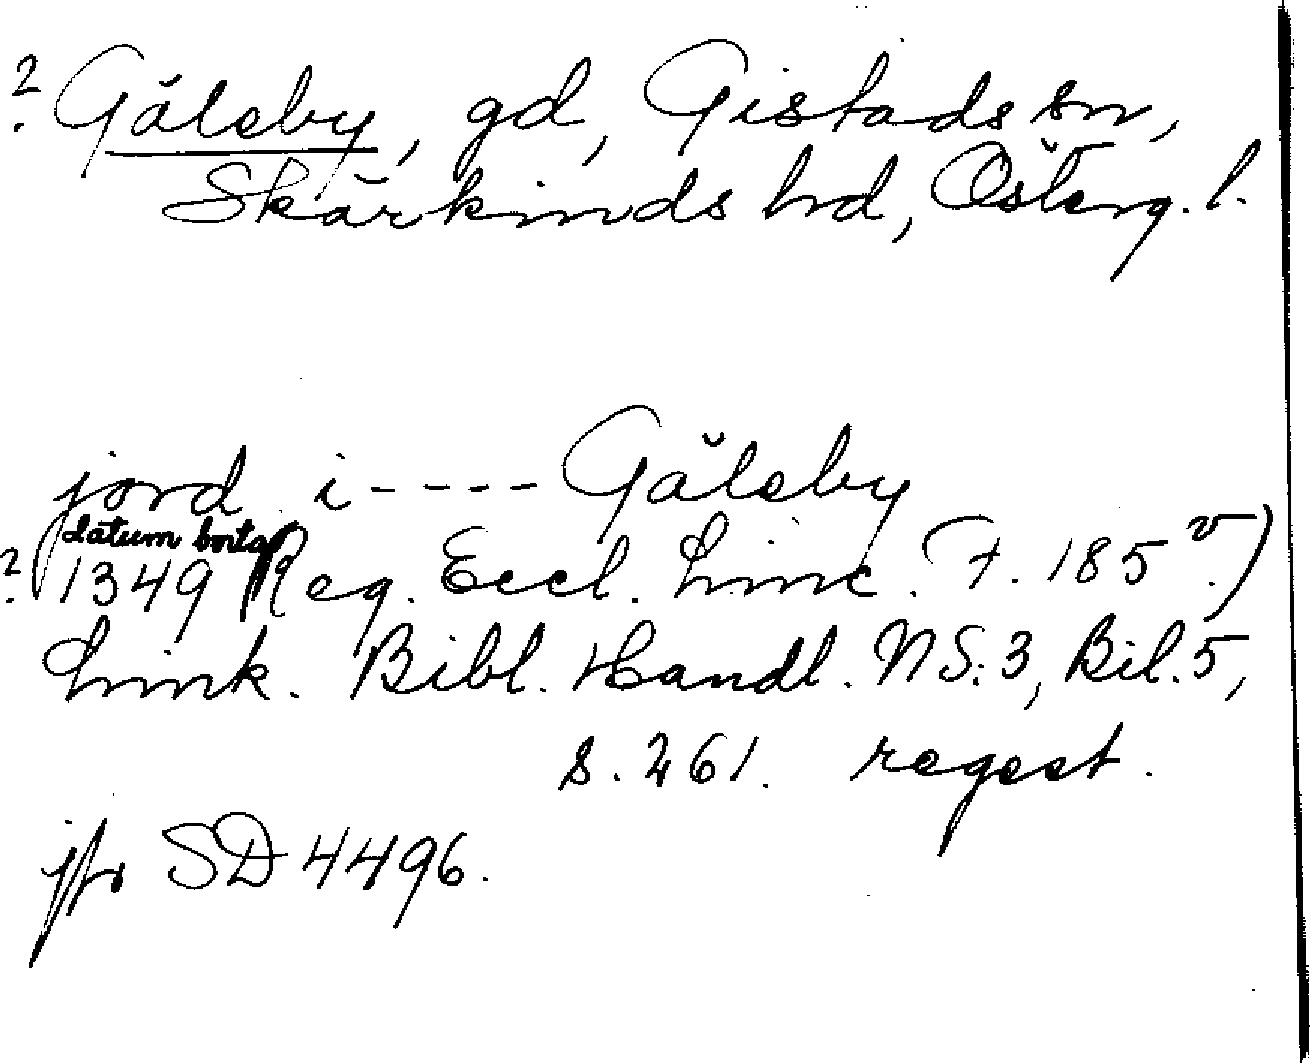 ? Gålsby, gd, Gistads sn,
Skärkinds hd, Österg. l.
jord i - - - - Gålsby
datum borta
? (1349 Reg. Eccl. Linc. F. 185 v.)
Link. Bibl. Handl. NS: 3, Bil. 5,
s. 261. regest.
jfr SD 4496.